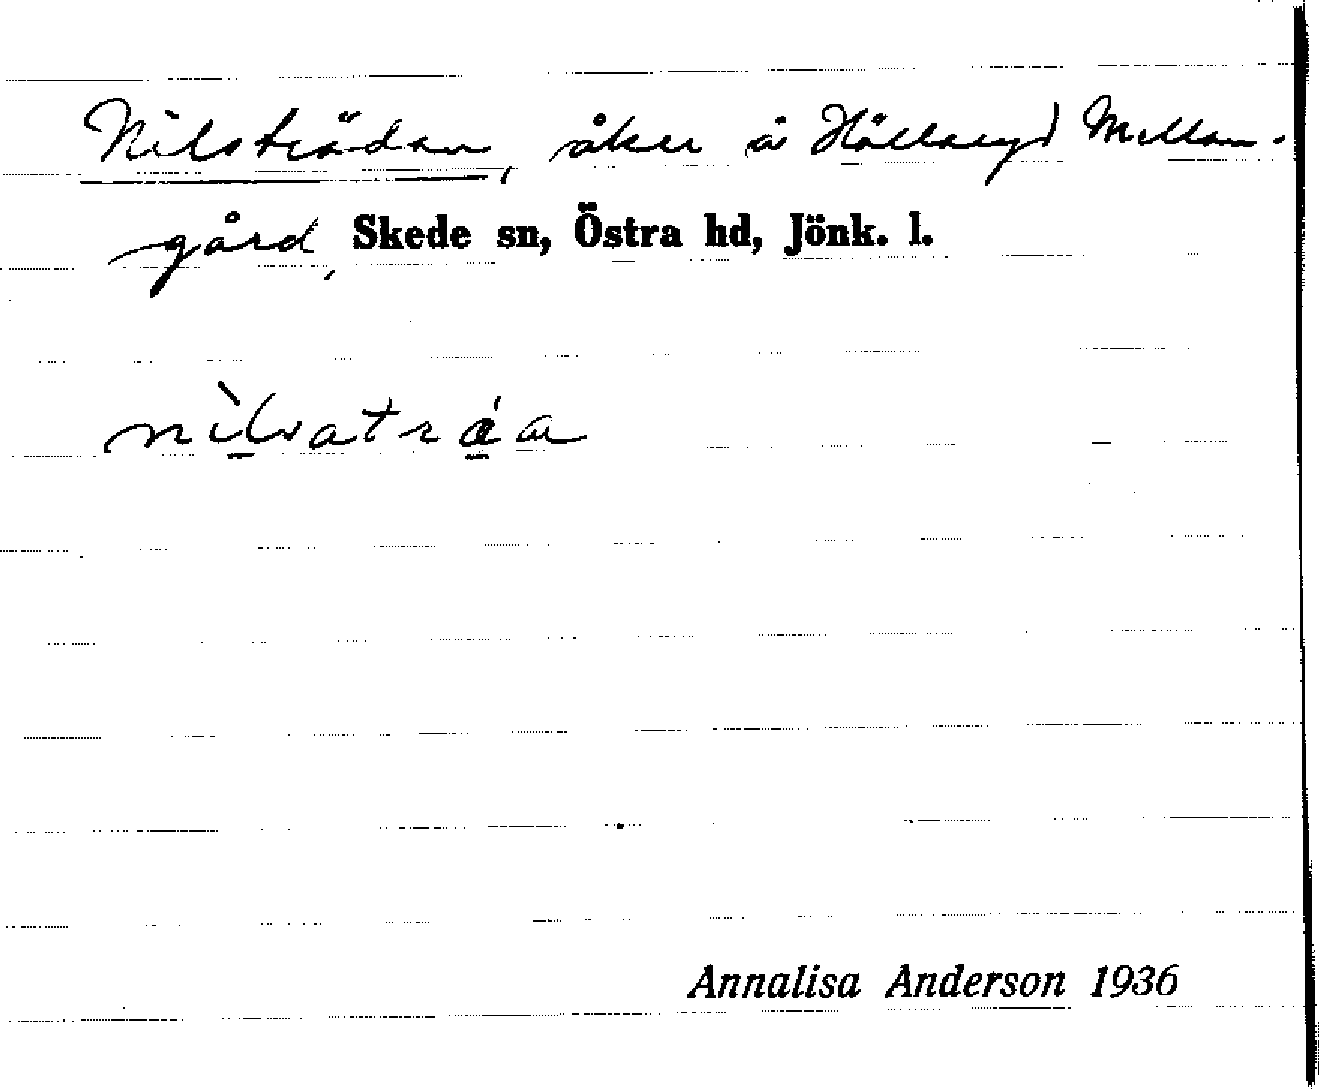 Nilsträdan, åker å Hållaryd Mellan-
gård, Skede sn, Östra hd, Jönk. l.
Annalisa Anderson 1936